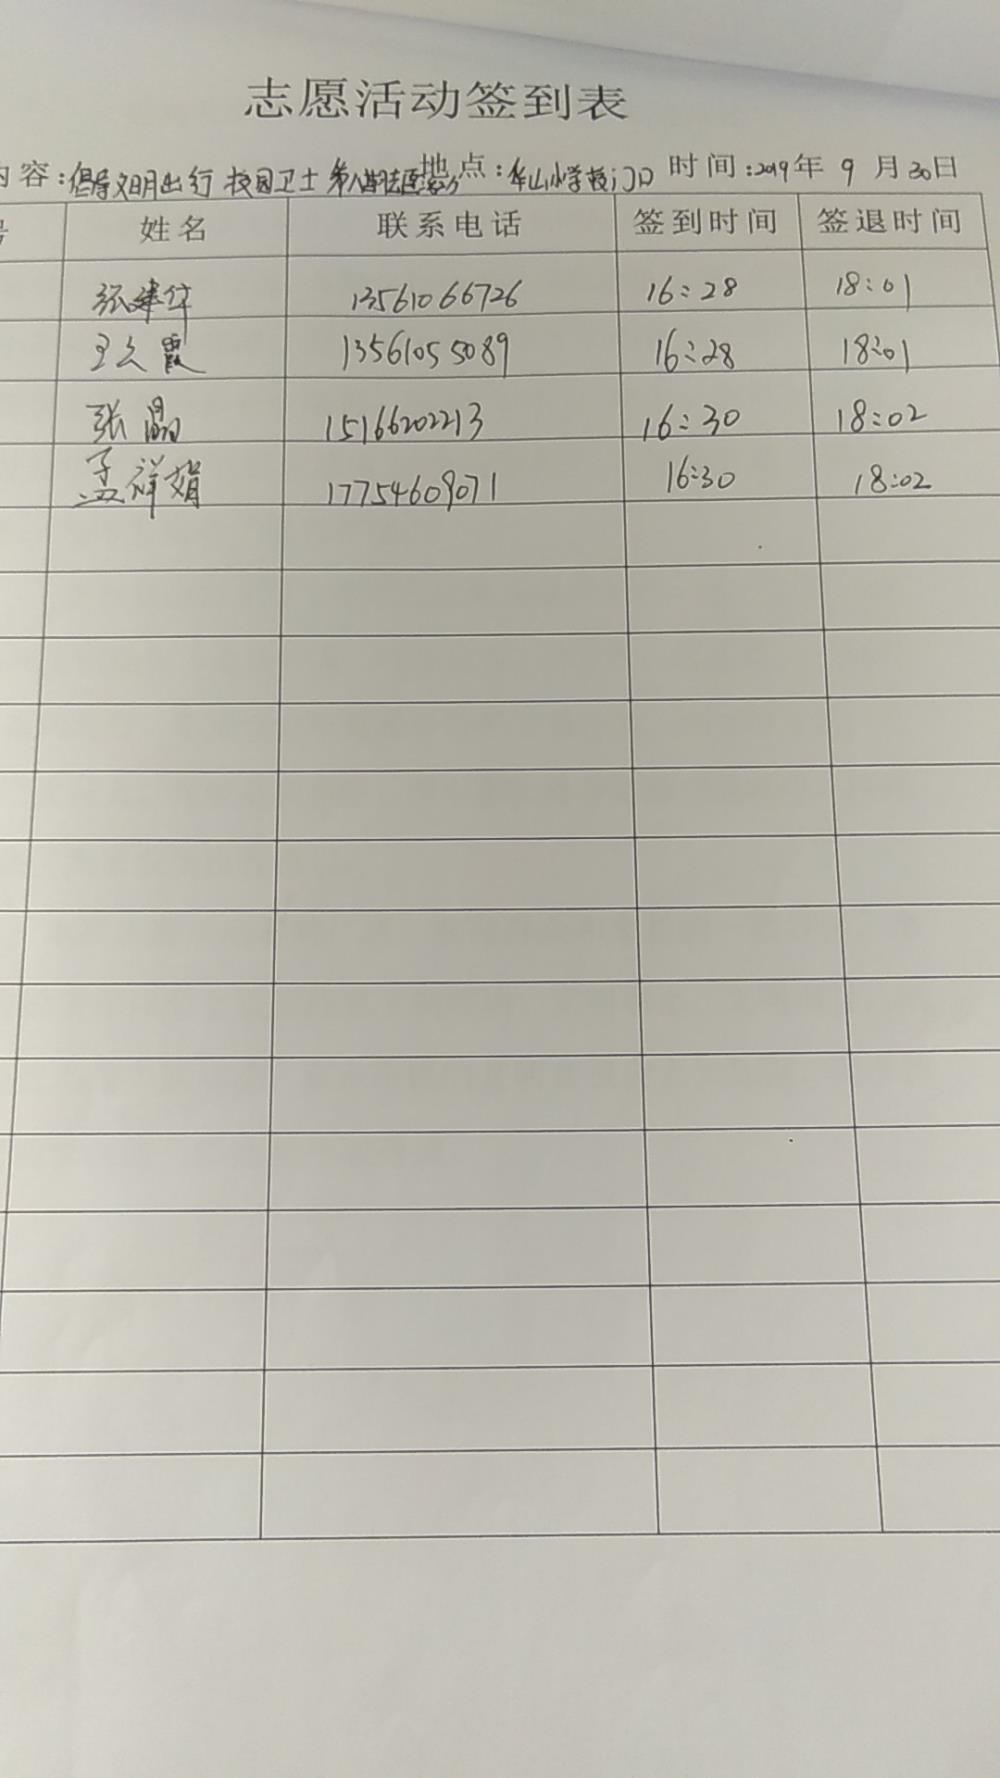 志愿活动签到表
内容:倡导文明出行 校园卫士 地点:华山小学校门口 时间:2019年 9 月 30日
号 姓名 联系电话 签到时间 签退时间
张建伟 13561066726 16:28 18:01
王久霞 13561055089 16:28 18:01
张晶 15166202213 16:30 18:02
孟祥娟 17754609071 16:30 18:02